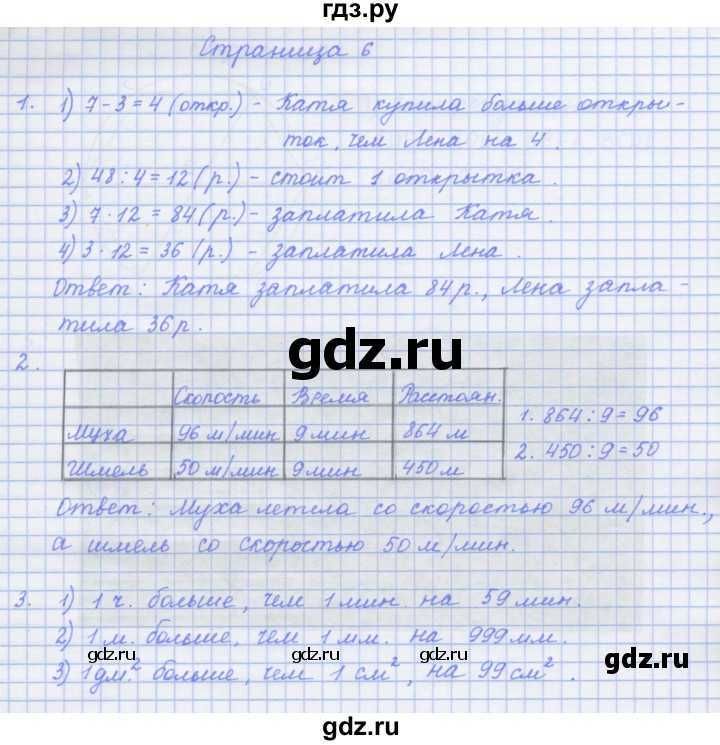 гдз.ру
Страница 6
1. 1) 7-3=4 (откр.) - Катя купила больше откры-
ток, чем Лена на 4.
2) 48:4=12(р.) - стоит 1 открытка.
3) 7·12=84(р.) - заплатила Катя.
4) 3·12=36(р.) - заплатила Лена.
Ответ: Катя заплатила 84р., Лена запла-
тила 36р.
gdz.ru
2.
Скорость Время Расстоян.
Муха 96 м/мин 9мин 864 м
Шмель 50 м/мин 9мин 450 м
1. 864:9=96
2. 450:9=50
Ответ: Муха летела со скоростью 96 м/мин.,
а шмель со скоростью 50 м/мин.
3. 1) 1 ч. больше, чем 1 мин. на 59 мин.
2) 1 м. больше, чем 1 мм. на 999 мм.
gdz.ru gdz.ru gdz.ru
3) 1 дм.² больше, чем 1 см², на 99 см².
gdz.ru gdz.ru
gdz.ru